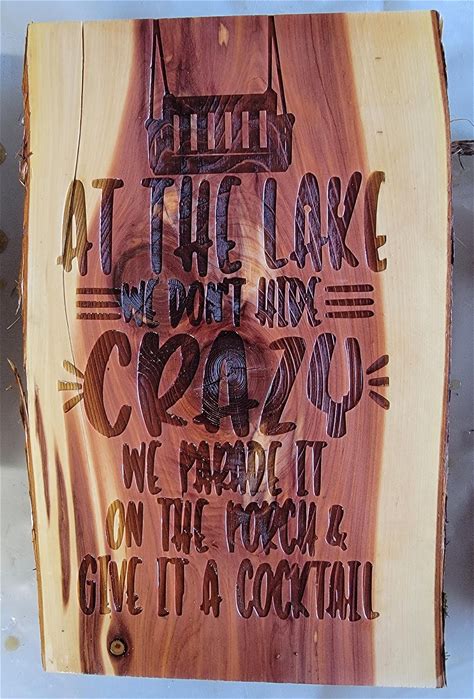 AT THE LAKE
WE DON'T HIDE
CRAZY
WE PARADE IT
ON THE PORCH &
GIVE IT A COCKTAIL